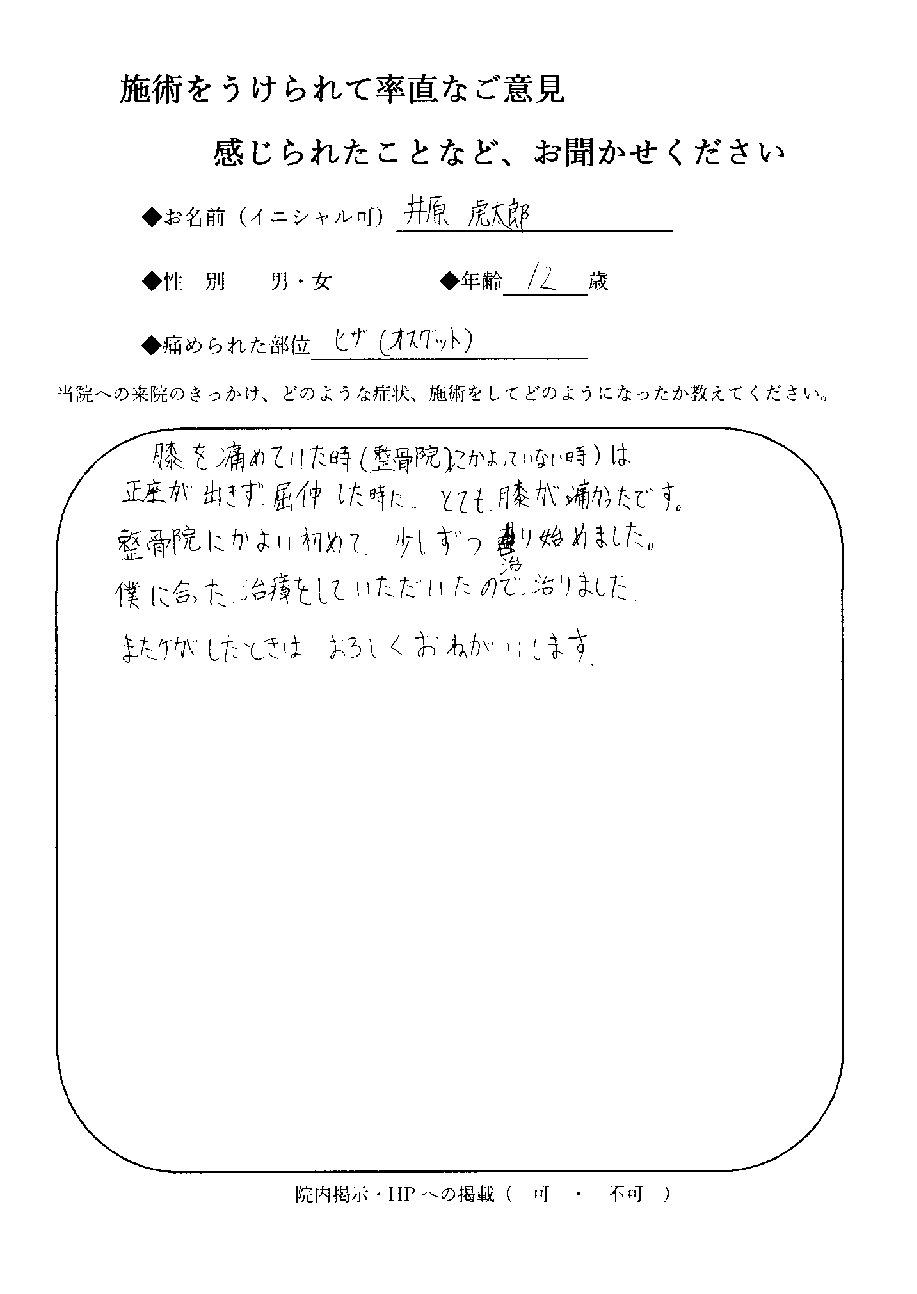 施術をうけられて率直なご意見
感じられたことなど、お聞かせください
◆お名前（イニシャル可） 井原 虎太郎
◆性 別 男・女 ◆年齢 12 歳
◆痛められた部位 ヒザ(オスグット)
当院への来院のきっかけ、どのような症状、施術をしてどのようになったか教えてください。
膝を痛めていた時(整骨院にかよっていない時)は
正座が出きず、屈伸した時に、とても膝が痛かったです。
整骨院にかよい初めて、少しずつ治り始めました。
僕に合った治療をしていただいたので、治りました。
またケガしたときは よろしくおねがいします。
院内掲示・HPへの掲載（ 可 ・ 不可 ）